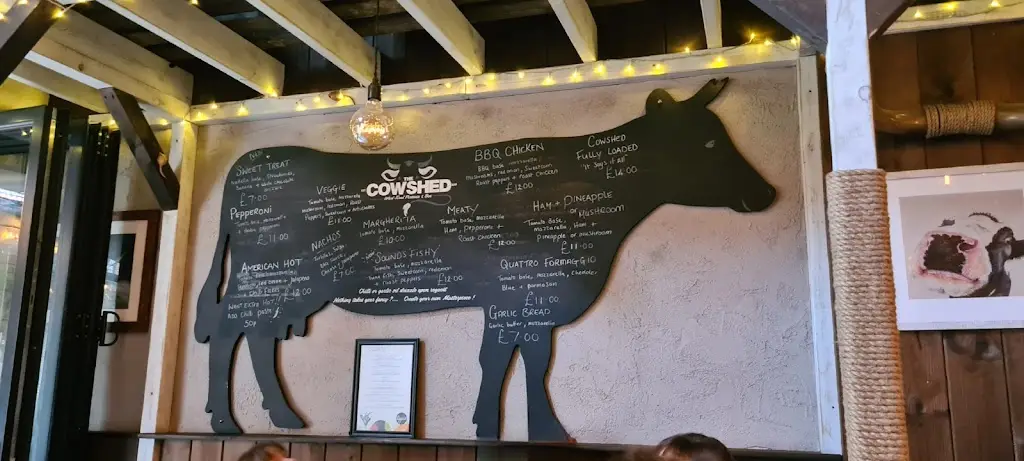 SWEET TREAT
£7.00
PEPPERONI
tomato base, mozzarella
+ double pepperoni
£11.00
AMERICAN HOT
£12.00
WANT EXTRA HOT!
Add Chilli paste
50p
VEGGIE
Tomato base, Mozzarella
Peppers, Sweetcorn + Artichokes
£11.00
NACHOS
THE
COWSHED
Wood Fired Pizzeria & Bar
MARGHERITA
Tomato base, mozzarella
£10.00
SOUNDS FISHY
Tomato base, mozzarella
Tuna, Sweetcorn, red onion
+ Roast peppers £12.00
Chilli or pesto oil drizzle upon request
Nothing takes your fancy?.... Create your own Masterpiece!
BBQ CHICKEN
BBQ base, mozzarella
Mushrooms, red onion, Sweetcorn
Roast peppers + roast chicken
£12.00
MEATY
Tomato base, mozzarella
Ham, Pepperoni +
Roast Chicken
£12.00
COWSHED
FULLY LOADED
"It Says it all"
£14.00
HAM + PINEAPPLE
or MUSHROOM
Tomato Base,
mozzarella, Ham +
Pineapple or mushroom
£11.00
QUATTRO FORMAGGIO
Tomato base, mozzarella, Cheddar,
Blue + parmesan
£11.00
GARLIC BREAD
Garlic butter, mozzarella
£7.00